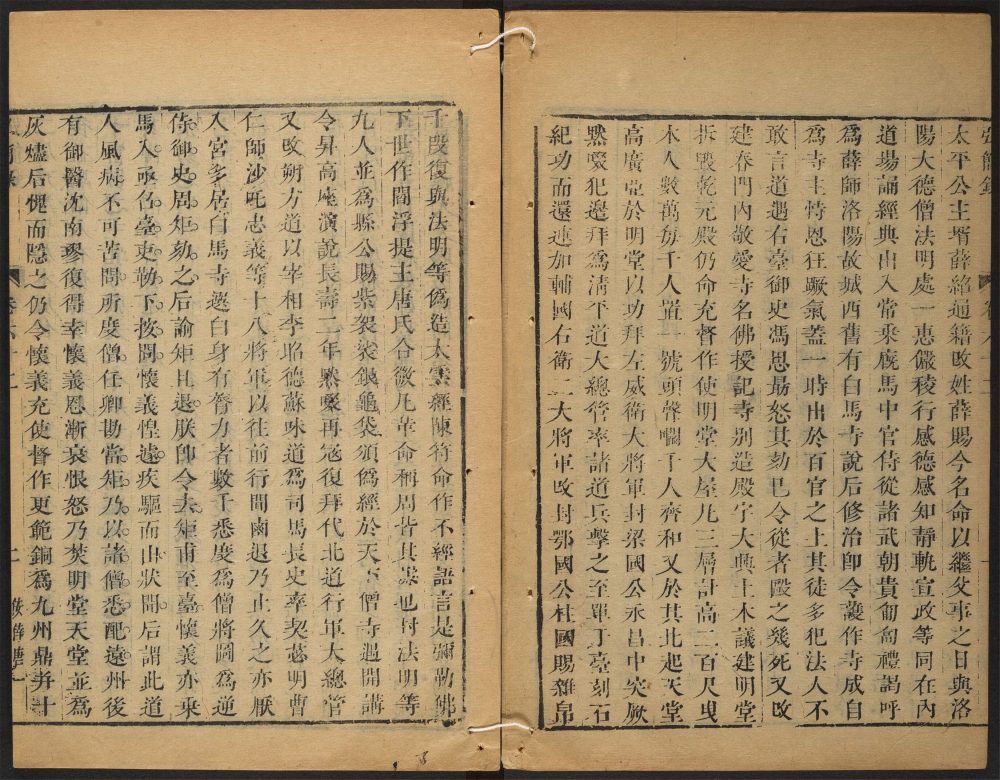 太平公主壻薛紹通籍改姓薛賜今名命以繼父事之日與洛
陽大德僧法明處一惠儼稜行感德感知靜軌宣政等同在內
道場誦經典出入常乘廐馬中官侍從諸武朝貴匍匐禮謁呼
為薛師洛陽故城西舊有白馬寺說后修治即令護作寺成自
為寺主恃恩狂蹶氣蓋一時出於百官之上其徒多犯法人不
敢言道遇右臺御史馮思勗怒其劾巳令從者毆之幾死又改
建春門內敬愛寺名佛授記寺別造殿宇大興土木議建明堂
拆毀乾元殿仍命充督作使明堂大屋凡三層計高二百尺曳
木人數萬每千人置一號頭聲嚾千人齊和又於其北起天堂
高廣亞於明堂以功拜左威衛大將軍封梁國公永昌中突厥
默啜犯邊拜為清平道大總管率諸道兵擊之至單丁臺刻石
紀功而還連加輔國右衛二大將軍改封鄂國公柱國賜雜帛
千段復與法明等偽造大雲經陳符命作不經語言是彌勒佛
下世作閻浮提主唐氏合微凡革命稱周皆其謀也封法明等
九人並為縣公賜紫袈裟銀龜袋頒偽經於天下僧寺遇開講
令昇高座演說長壽二年默啜再寇復拜代北道行軍大總管
又改朔方道以宰相李昭德蘇味道為司馬長史率契苾明曹
仁師沙吒忠義等十八將軍以往前行聞鹵退乃止久之亦厭
入宮多居白馬寺選白身有膂力者數千悉度為僧將圖為逆
侍御史周矩劾之后諭矩且退朕即令去矩甫至臺懷義亦乘
馬入亟召臺吏勒下按問懷義惶遽疾驅而出狀聞后謂此道
人風病不可苦問所度僧任卿勘當矩乃以諸僧悉配遠州後
有御醫沈南璆復得幸懷義恩漸衰恨怒乃焚明堂天堂並為
灰燼后愧而隱之仍令懷義充使督作更範銅為九州鼎并十